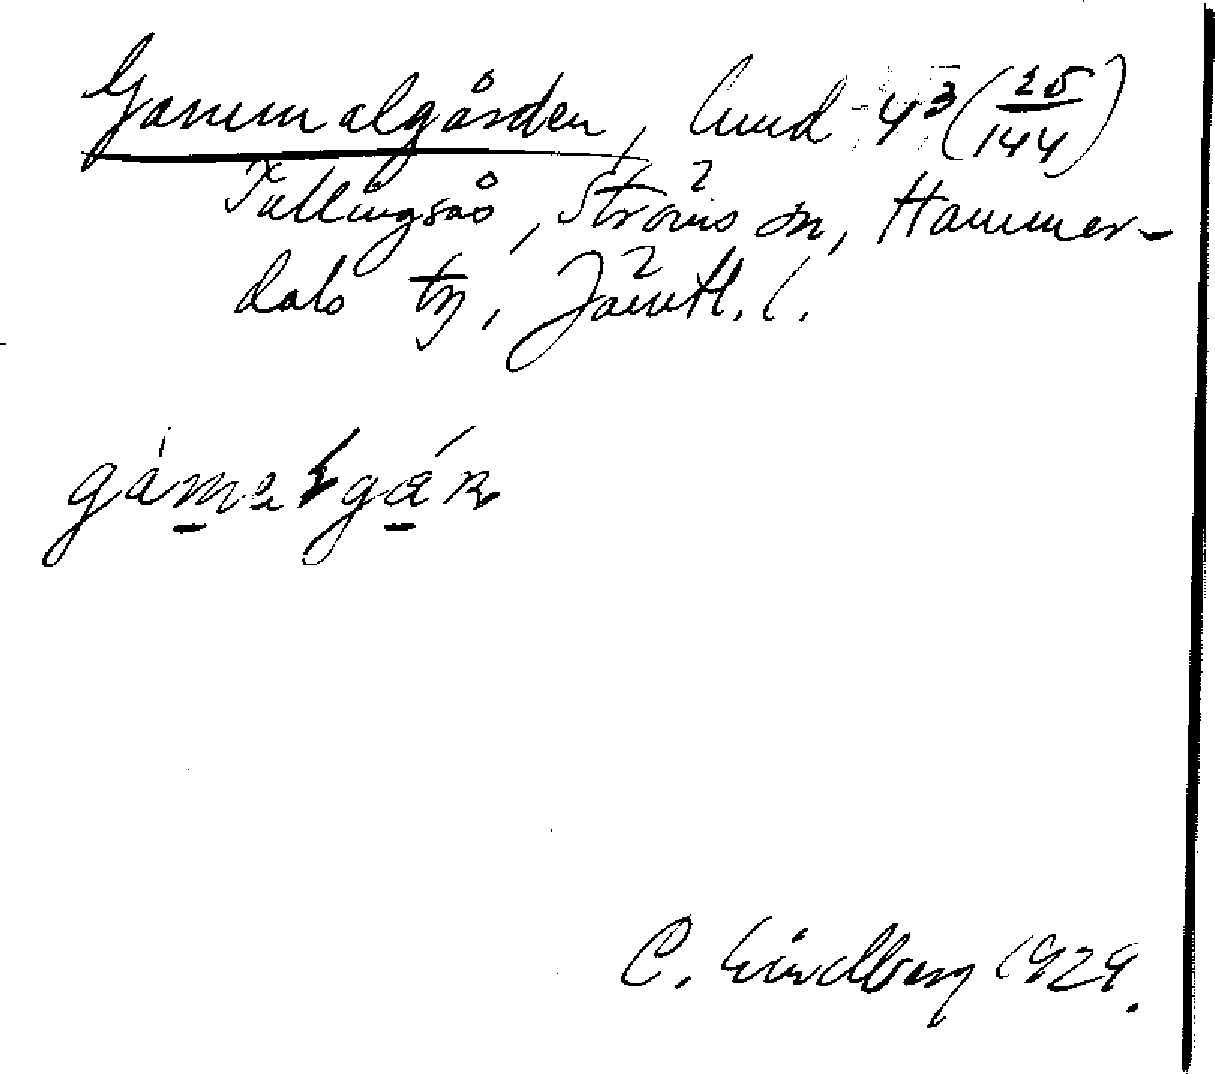 Gammalgården, hmd 4³ (25/144)
Tullingsås, Ströms sn, Hammer-
dals tg, Jämtl. l.
gámalgáṛn
C. Lindberg 1929.